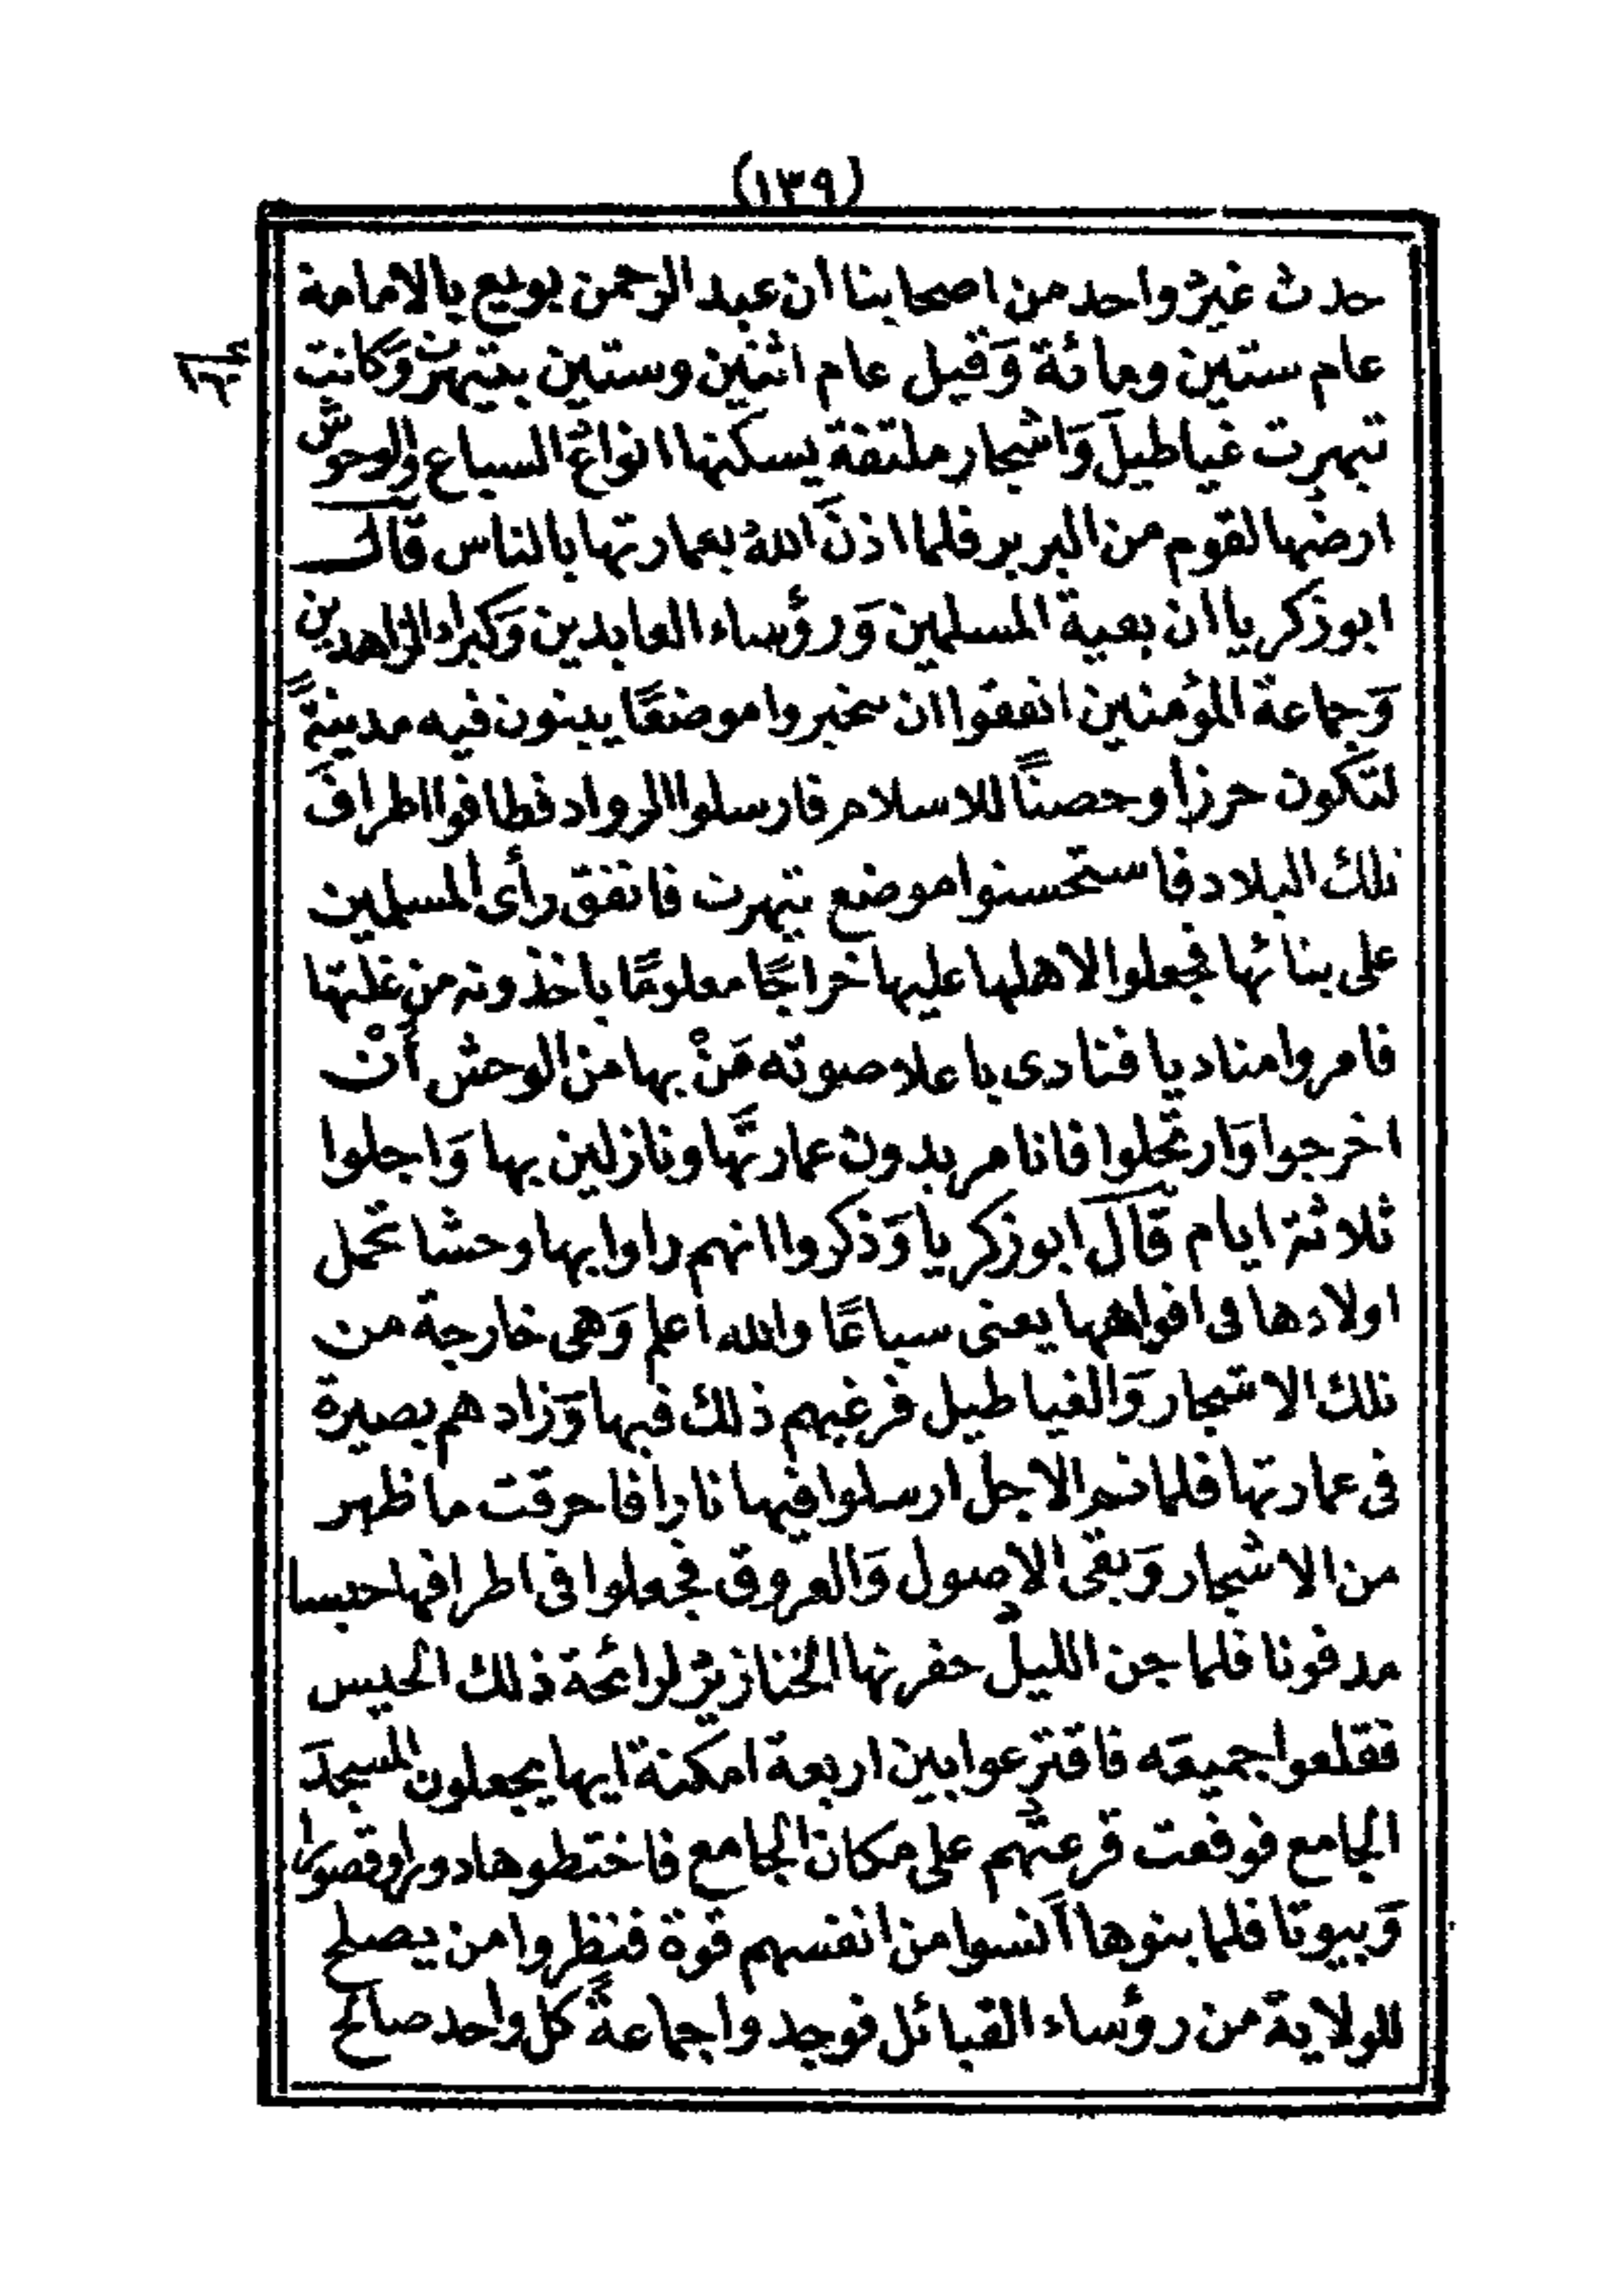 (١٣٩)
حدث غيرُ واحد من اصحابنا ان عبد الرحمن بويع بالامامة
عام ستين ومائة وَقيل عام اثنين وستين بتيهرت وَكانت
تيهرت غياطيلَ وَاشجار ملتفة يسكنها انواعُ السباع والوحوش
ارضها لقوم من البربر فلما اذنَ اللهُ بعمارتها بالناس قال
ابو زكريا ان بعية المسلمين وَرؤساء العابدين وَكبراء الزاهدين
وَجماعة المؤمنين اتفقوا ان يتخيروا موضعًا يبنون فيه مدينةً
لتكون حرزا وحصنًا للاسلام فارسلوا الرواد فطافوا اطرافَ
تلك البلاد فاستحسنوا موضع تيهرت فاتفق رأى المسلمين
على بنائها فجعلوا لاهلها عليها خراجًا معلومًا ياخذونه من غلتها
فامروا مناديا فنادى باعلا صوته مَنْ بها من الوحش أنْ
اخرجوا وَارتحلوا فانا مريدون عمارتَها ونازلين بها وَاجلوا
ثلاثة ايام قالَ ابو زكريا وَذكروا انهم راوا بها وحشا تحمل
اولادها فى افواهها يعنى سباعًا والله اعلم وَهى خارجة من
تلك الاشجار وَالغياطيل فرغبهم ذلك فيها وَزادهم بصيرة
فى عمارتها فلما تم الاجل ارسلوا فيها نارا فاحرقت ما ظهر
من الاشجار وَبقى الاصول وَالعروق فجعلوا فى اطرافها حيسا
مدفونا فلما جن الليل حفرتها الخنازيرُ لرائحة ذلك الحيس
فقلعوا جميعَه فاقترعوا بين اربعة امكنة ايها يجعلون المسجدَ
الجامع فوقعت قرعتُهم على مكان الجامع فاختطوها دورا وقصورا
وَبيوتا فلما بنوها آنسوا من انفسهم قوة فنظروا من يصلح
للولاية من رؤساء القبائل فوجدوا جماعةً كل واحد صالح